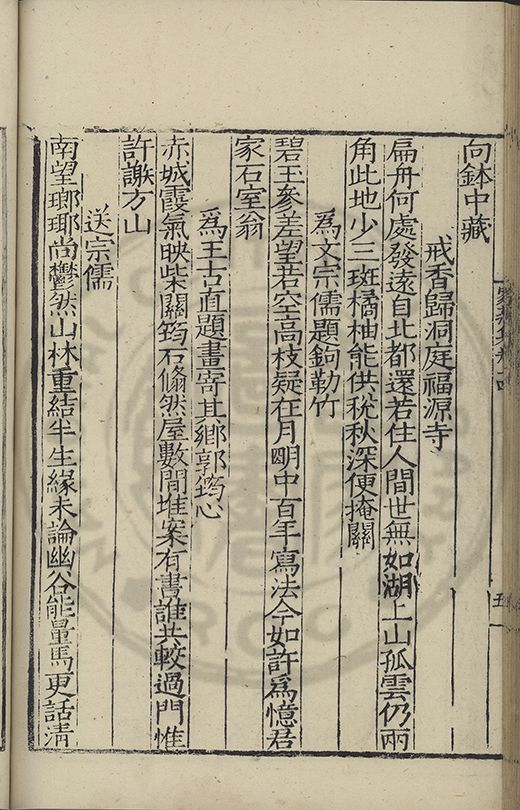 向鉢中藏
戒香歸洞庭福源寺
扁舟何處發遠自北都還若住人間世無如湖上山孤雲仍兩
角此地少三斑橘柚能供稅秋深便掩關
為文宗儒題鉤勒竹
碧玉參差望若空高枝疑在月明中百年寫法今如許為憶君
家石室翁
為王古直題畫寄其鄉郭筠心
赤城霞氣映柴關筠石翛然屋數間堆案有書誰共較過門惟
許謝方山
送宗儒
南望瑯琊尚鬱然山林重結半生緣未論幽谷能量馬更話清
五